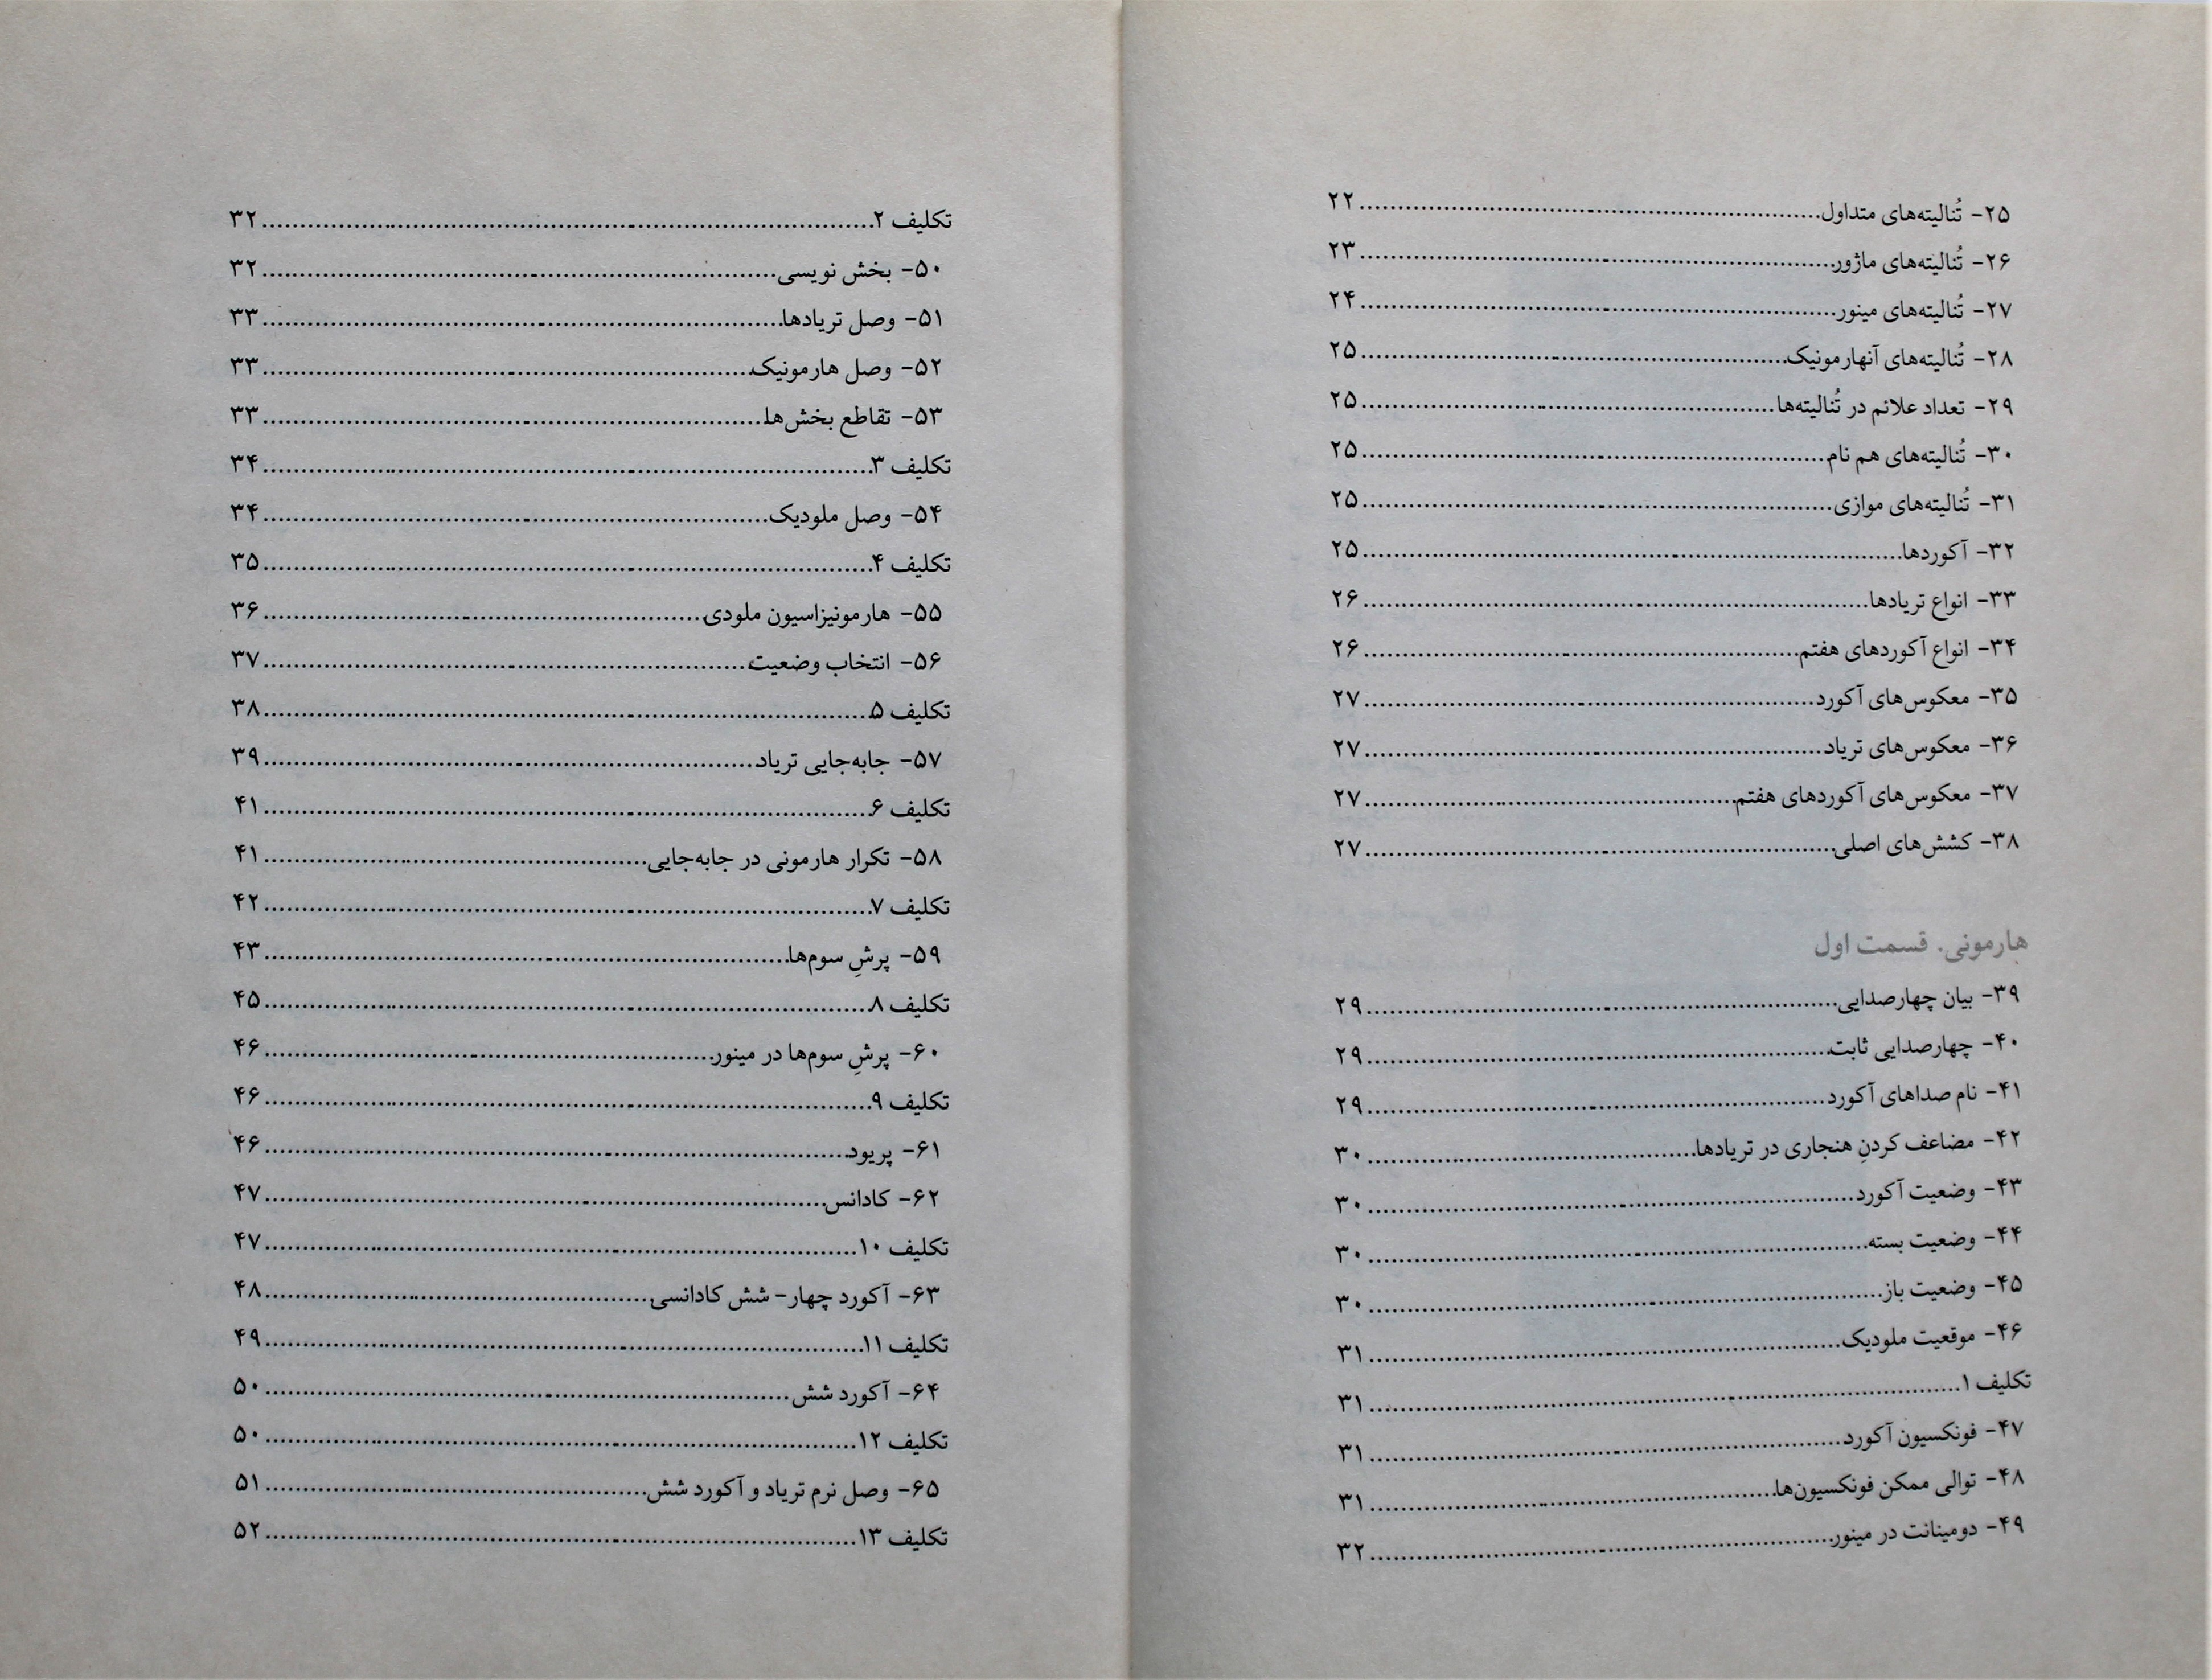 ۲۵- تُنالیته‌های متداول........................................۲۲
۲۶- تُنالیته‌های ماژور........................................۲۳
۲۷- تُنالیته‌های مینور........................................۲۴
۲۸- تُنالیته‌های آنهارمونیک........................................۲۵
۲۹- تعداد علائم در تُنالیته‌ها........................................۲۵
۳۰- تُنالیته‌های هم نام........................................۲۵
۳۱- تُنالیته‌های موازی........................................۲۵
۳۲- آکوردها........................................۲۵
۳۳- انواع تریادها........................................۲۶
۳۴- انواع آکوردهای هفتم........................................۲۶
۳۵- معکوس‌های آکورد........................................۲۷
۳۶- معکوس‌های تریاد........................................۲۷
۳۷- معکوس‌های آکوردهای هفتم........................................۲۷
۳۸- کشش‌های اصلی........................................۲۷
هارمونی. قسمت اول
۳۹- بیان چهارصدایی........................................۲۹
۴۰- چهارصدایی ثابت........................................۲۹
۴۱- نام صداهای آکورد........................................۲۹
۴۲- مضاعف کردنِ هنجاری در تریادها........................................۳۰
۴۳- وضعیت آکورد........................................۳۰
۴۴- وضعیت بسته........................................۳۰
۴۵- وضعیت باز........................................۳۰
۴۶- موقعیت ملودیک........................................۳۱
تکلیف ۱........................................۳۱
۴۷- فونکسیون آکورد........................................۳۱
۴۸- توالی ممکن فونکسیون‌ها........................................۳۱
۴۹- دومینانت در مینور........................................۳۲
تکلیف ۲........................................۳۲
۵۰- بخش نویسی........................................۳۲
۵۱- وصل تریادها........................................۳۳
۵۲- وصل هارمونیک........................................۳۳
۵۳- تقاطع بخش‌ها........................................۳۳
تکلیف ۳........................................۳۴
۵۴- وصل ملودیک........................................۳۴
تکلیف ۴........................................۳۵
۵۵- هارمونیزاسیون ملودی........................................۳۶
۵۶- انتخاب وضعیت........................................۳۷
تکلیف ۵........................................۳۸
۵۷- جابه‌جایی تریاد........................................۳۹
تکلیف ۶........................................۴۱
۵۸- تکرار هارمونی در جابه‌جایی........................................۴۱
تکلیف ۷........................................۴۲
۵۹- پرشِ سوم‌ها........................................۴۳
تکلیف ۸........................................۴۵
۶۰- پرشِ سوم‌ها در مینور........................................۴۶
تکلیف ۹........................................۴۶
۶۱- پریود........................................۴۶
۶۲- کادانس........................................۴۷
تکلیف ۱۰........................................۴۷
۶۳- آکورد چهار- شش کادانسی........................................۴۸
تکلیف ۱۱........................................۴۹
۶۴- آکورد شش........................................۵۰
تکلیف ۱۲........................................۵۰
۶۵- وصل نرم تریاد و آکورد شش........................................۵۱
تکلیف ۱۳........................................۵۲